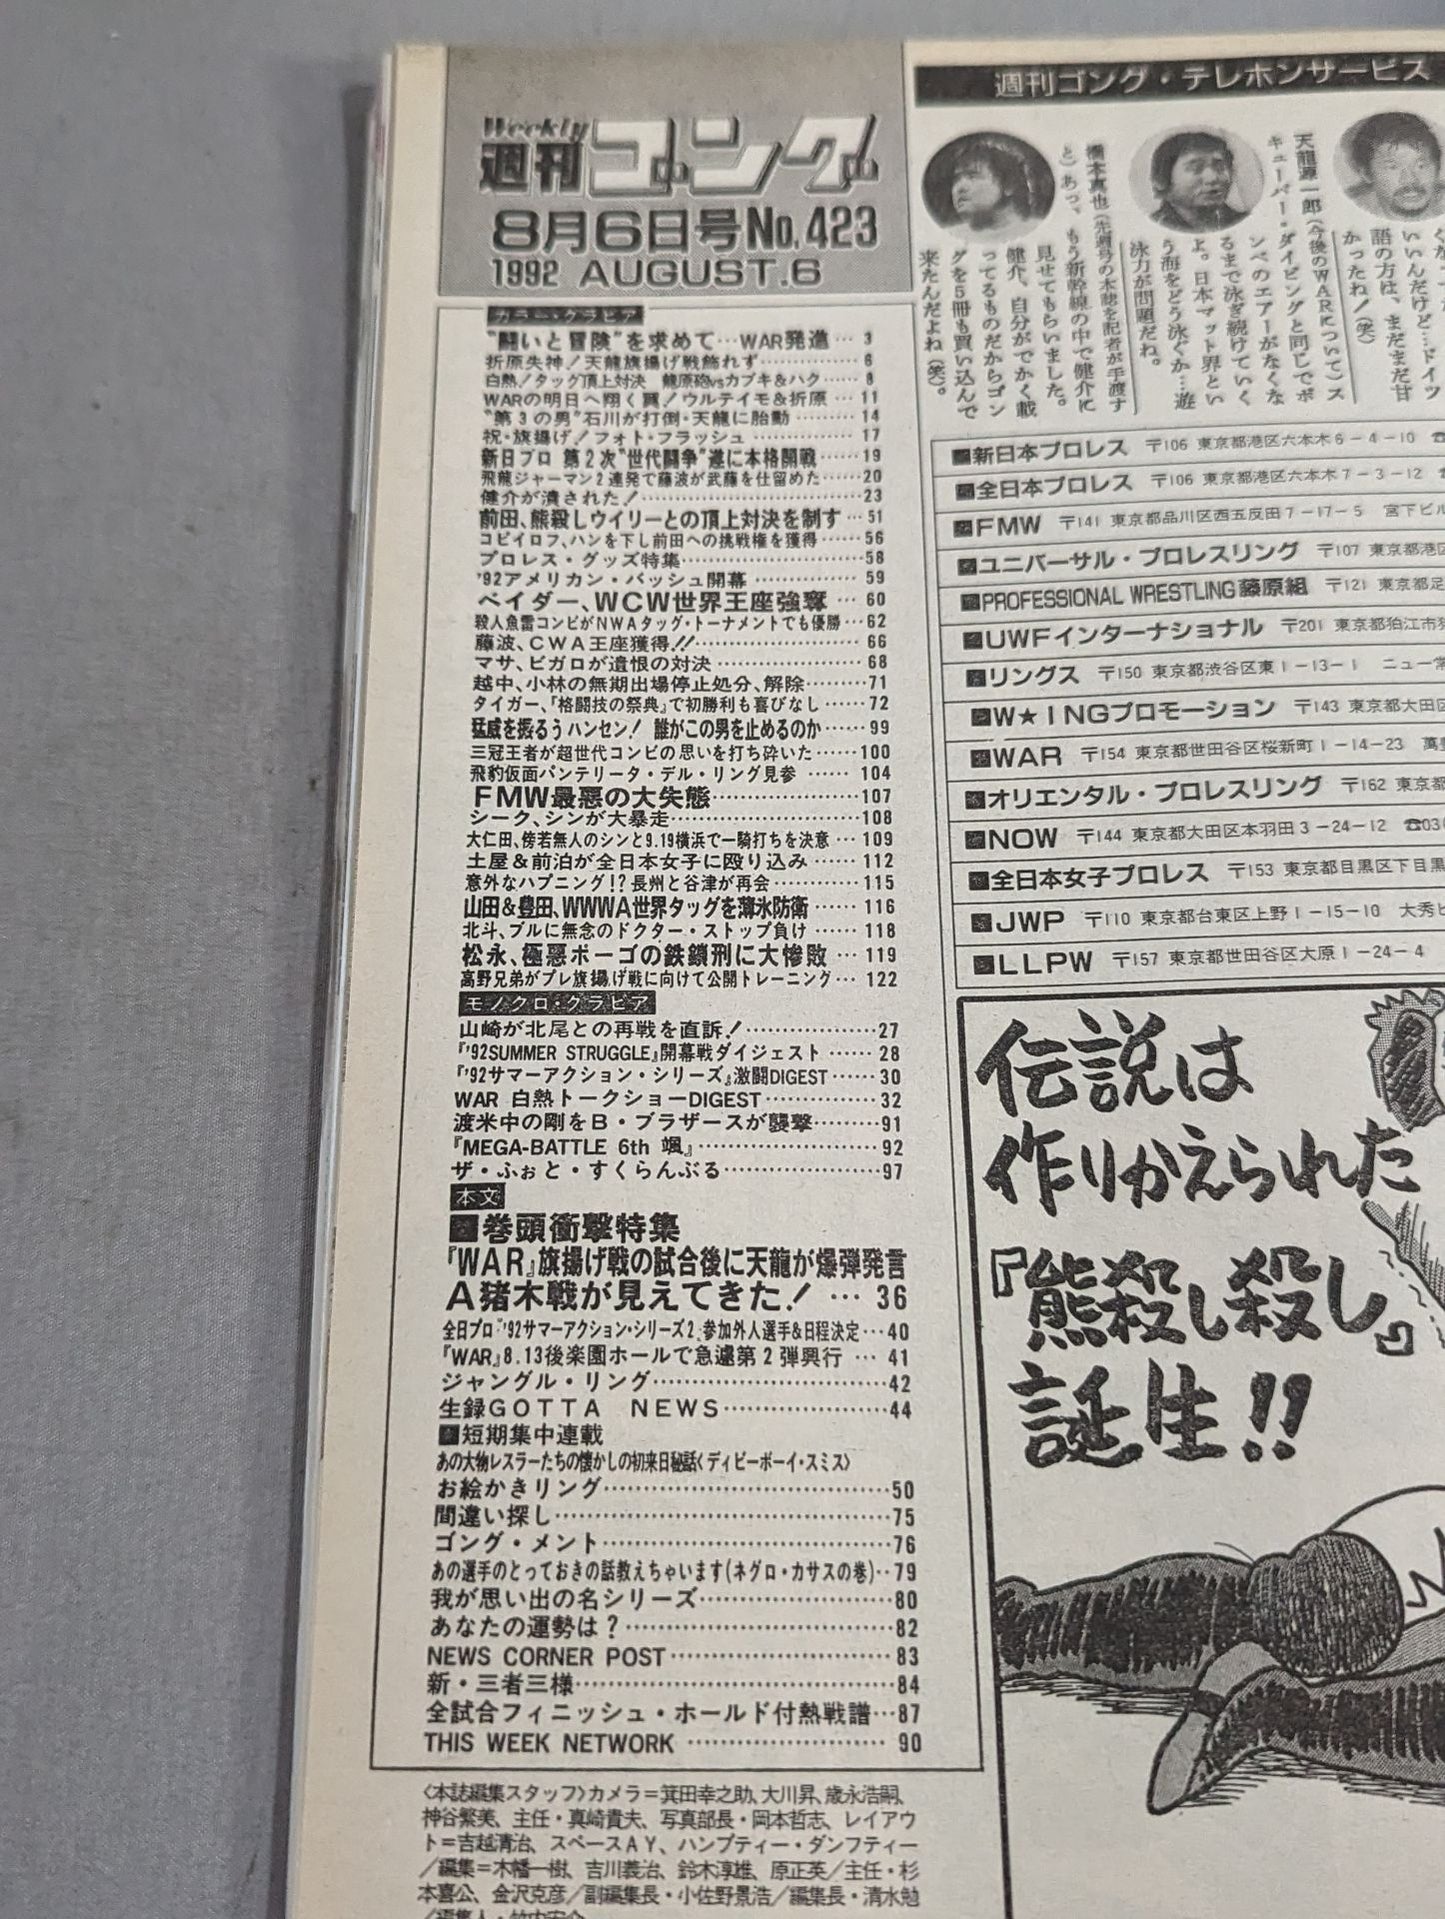 Weekly
週刊ゴング
8月6日号No.423
1992 AUGUST.6
カラー・グラビア
"闘いと冒険"を求めて…WAR発進 … 3
折原失神!天龍旗揚げ戦飾れず…………… 6
白熱!タッグ頂上対決 龍原砲vsカブキ&ハク…… 8
WARの明日へ翔く翼!ウルティモ&折原 … 11
"第3の男"石川が打倒・天龍に胎動 ……… 14
祝・旗揚げ!フォト・フラッシュ …………… 17
新日プロ 第2次"世代闘争"遂に本格開戦……19
飛龍ジャーマン2連発で藤波が武藤を仕留めた……20
健介が潰された!………………………………23
前田、熊殺しウイリーとの頂上対決を制す … 51
コピイロフ、ハンを下し前田への挑戦権を獲得…… 56
プロレス・グッズ特集…………………………58
'92アメリカン・バッシュ開幕 ……………… 59
ベイダー、WCW世界王座強奪 … 60
殺人魚雷コンビがNWAタッグ・トーナメントでも優勝…62
藤波、CWA王座獲得!!…………………… 66
マサ、ビガロが遺恨の対決 ………………… 68
越中、小林の無期出場停止処分、解除………71
タイガー、『格闘技の祭典』で初勝利も喜びなし…… 72
猛威を振るうハンセン! 誰がこの男を止めるのか…… 99
三冠王者が超世代コンビの思いを打ち砕いた……100
飛豹仮面パンテリータ・デル・リング見参 …… 104
FMW最悪の大失態…………………107
シーク、シンが大暴走…………………………108
大仁田、傍若無人のシンと9.19横浜で一騎打ちを決意 … 109
土屋&前泊が全日本女子に殴り込み…… 112
意外なハプニング!?長州と谷津が再会………… 115
山田&豊田、WWWA世界タッグを薄氷防衛 …… 116
北斗、ブルに無念のドクター・ストップ負け …… 118
松永、極悪ポーゴの鉄鎖刑に大惨敗 … 119
高野兄弟がプレ旗揚げ戦に向けて公開トレーニング… 122
モノクロ・グラビア
山崎が北尾との再戦を直訴!………………27
『'92SUMMER STRUGGLE』開幕戦ダイジェスト …… 28
『'92サマーアクション・シリーズ』激闘DIGEST…… 30
WAR 白熱トークショーDIGEST…………… 32
渡米中の剛をB・ブラザースが襲撃………91
『MEGA-BATTLE 6th 颯』…………………… 92
ザ・ふぉと・すくらんぶる…………………97
本文
■巻頭衝撃特集
『WAR』旗揚げ戦の試合後に天龍が爆弾発言
A猪木戦が見えてきた! … 36
全日プロ'92サマーアクション・シリーズ2、参加外人選手&日程決定…40
『WAR』8.13後楽園ホールで急遽第2弾興行 … 41
ジャングル・リング……………………………42
生録GOTTA NEWS…………………44
■短期集中連載
あの大物レスラーたちの懐かしの初来日秘話〈デイビーボーイ・スミス〉
お絵かきリング…………………………………50
間違い探し………………………………………75
ゴング・メント…………………………………76
あの選手のとっておきの話教えちゃいます(ネグロ・カサスの巻)…79
我が思い出の名シリーズ……………………80
あなたの運勢は?………………………………82
NEWS CORNER POST…………………………83
新・三者三様……………………………………84
全試合フィニッシュ・ホールド付熱戦譜…87
THIS WEEK NETWORK …………………… 90
〈本誌編集スタッフ〉カメラ=箕田幸之助、大川昇、歳永浩嗣、
神谷繁美、主任・真崎貴夫、写真部長・岡本哲志、レイアウ
ト=吉越清治、スペースAY、ハンプティー・ダンプティー
/編集=木幡一樹、吉川義治、鈴木淳雄、原正英/主任・杉
本喜公、金沢克彦/副編集長・小佐野景浩/編集長・清水勉
週刊ゴング・テレホンサービス
かったね!(笑)
語の方は、まだまだ甘
いいんだけど…ドイツ
天龍源一郎(今後のWARについて)ス
キューバー・ダイビングと同じでボ
ンベのエアーがなくな
るまで泳ぎ続けていく
よ。日本マット界とい
う海をどう泳ぐか…遊
泳力が問題だね。
橋本真也(先週号の本誌を記者が手渡す
と)あっ、もう新幹線の中で健介に
見せてもらいました。
健介、自分がでかく載
ってるものだからゴン
グを5冊も買い込んで
来たんだよね(笑)。
■新日本プロレス 〒106 東京都港区六本木6-4-10 ☎
■全日本プロレス 〒106 東京都港区六本木7-3-12
■FMW 〒141 東京都品川区西五反田7-17-5 宮下ビル
■ユニバーサル・プロレスリング 〒107 東京都港区
■PROFESSIONAL WRESTLING藤原組 〒121 東京都足
■UWFインターナショナル 〒201 東京都狛江市
■リングス 〒150 東京都渋谷区東1-13-1 ニュー常
■W★INGプロモーション 〒143 東京都大田区
■WAR 〒154 東京都世田谷区桜新町1-14-23
■オリエンタル・プロレスリング 〒162 東京都
■NOW 〒144 東京都大田区本羽田3-24-12 ☎03
■全日本女子プロレス 〒153 東京都目黒区下目黒
■JWP 〒110 東京都台東区上野1-15-10 大秀ビ
■LLPW 〒157 東京都世田谷区大原1-24-4
伝説は
作りかえられた
『熊殺し殺し』
誕生!!